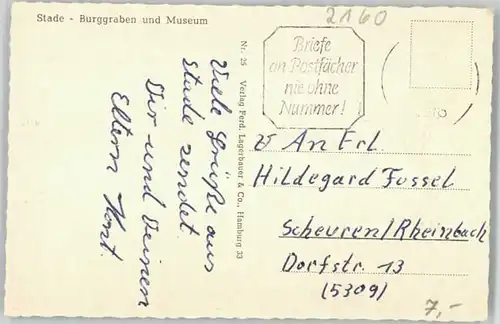 Stade - Burggraben und Museum
2160
Briefe
an Postfächer
nie ohne
Nummer!
Viele Grüße aus
Stade sendet
Dir und Deinen
Eltern Horst.
Nr. 25 Verlag Ferd. Lagerbauer & Co., Hamburg 33
An Frl.
Hildegard Fussel
Scheuren/Rheinbach
Dorfstr. 13
(5309)
7,-